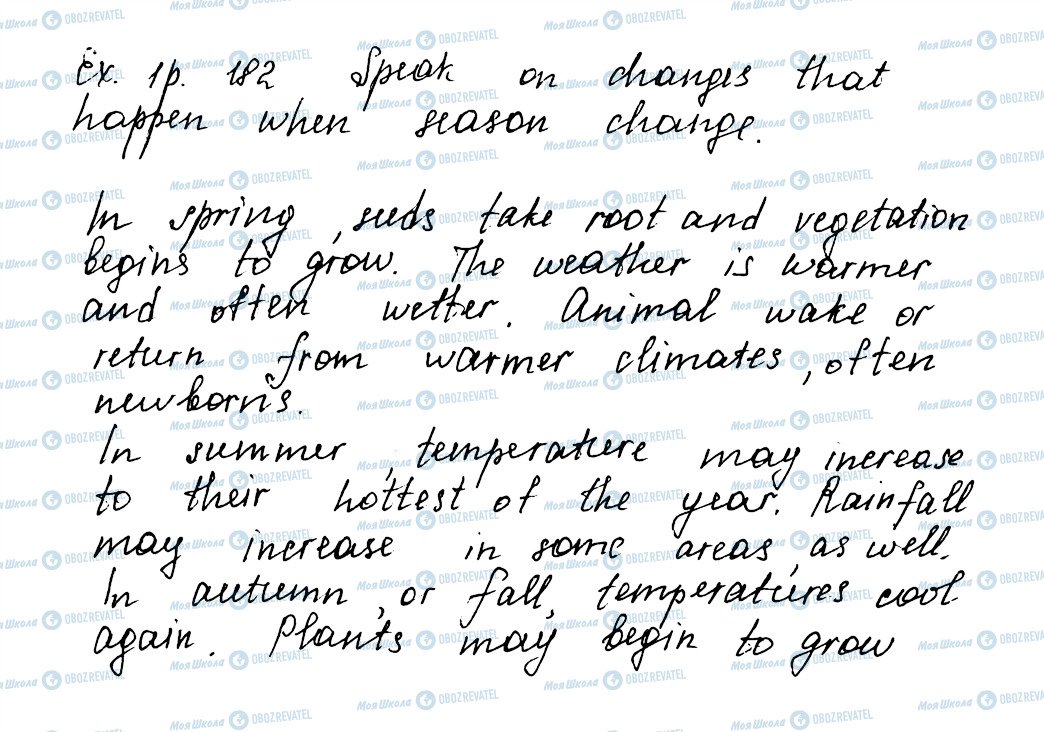 Ex. 1 p. 182 Speak on changes that
happen when season change.
In spring, seeds take root and vegetation
begins to grow. The weather is warmer
and often wetter. Animal wake or
return from warmer climates, often
newborns.
In summer, temperature may increase
to their hottest of the year. Rainfall
may increase in some areas, as well.
In autumn, or fall, temperatures cool
again. Plants may begin to grow
МояШкола OBOZREVATEL